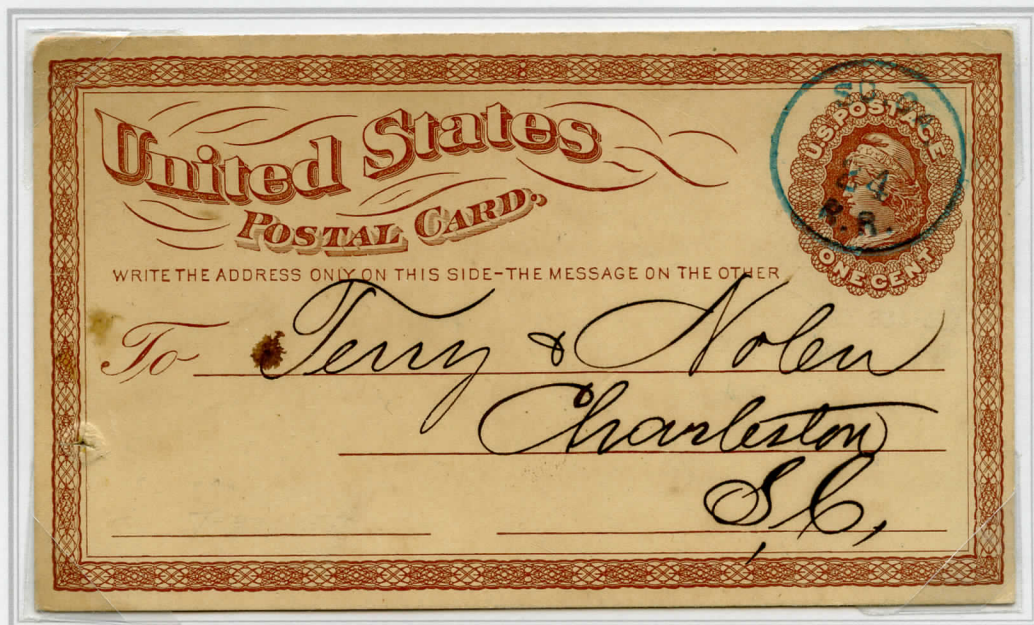 United States
POSTAL CARD.
U.S. POSTAGE
ONE CENT
24
R.R.
WRITE THE ADDRESS ONLY ON THIS SIDE-THE MESSAGE ON THE OTHER
To Terry & Nolen
Charleston
S.C,